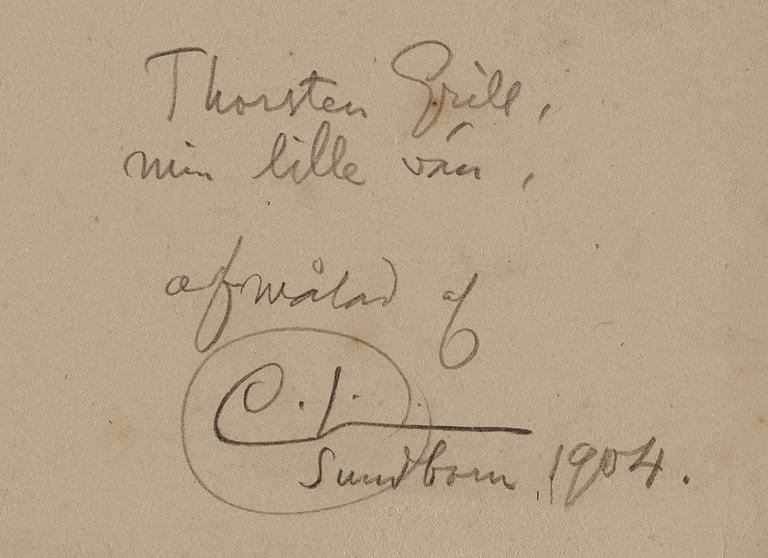 Thorsten Grill,
min lille vän,
afmålad af
C.L.
Sundborn 1904.